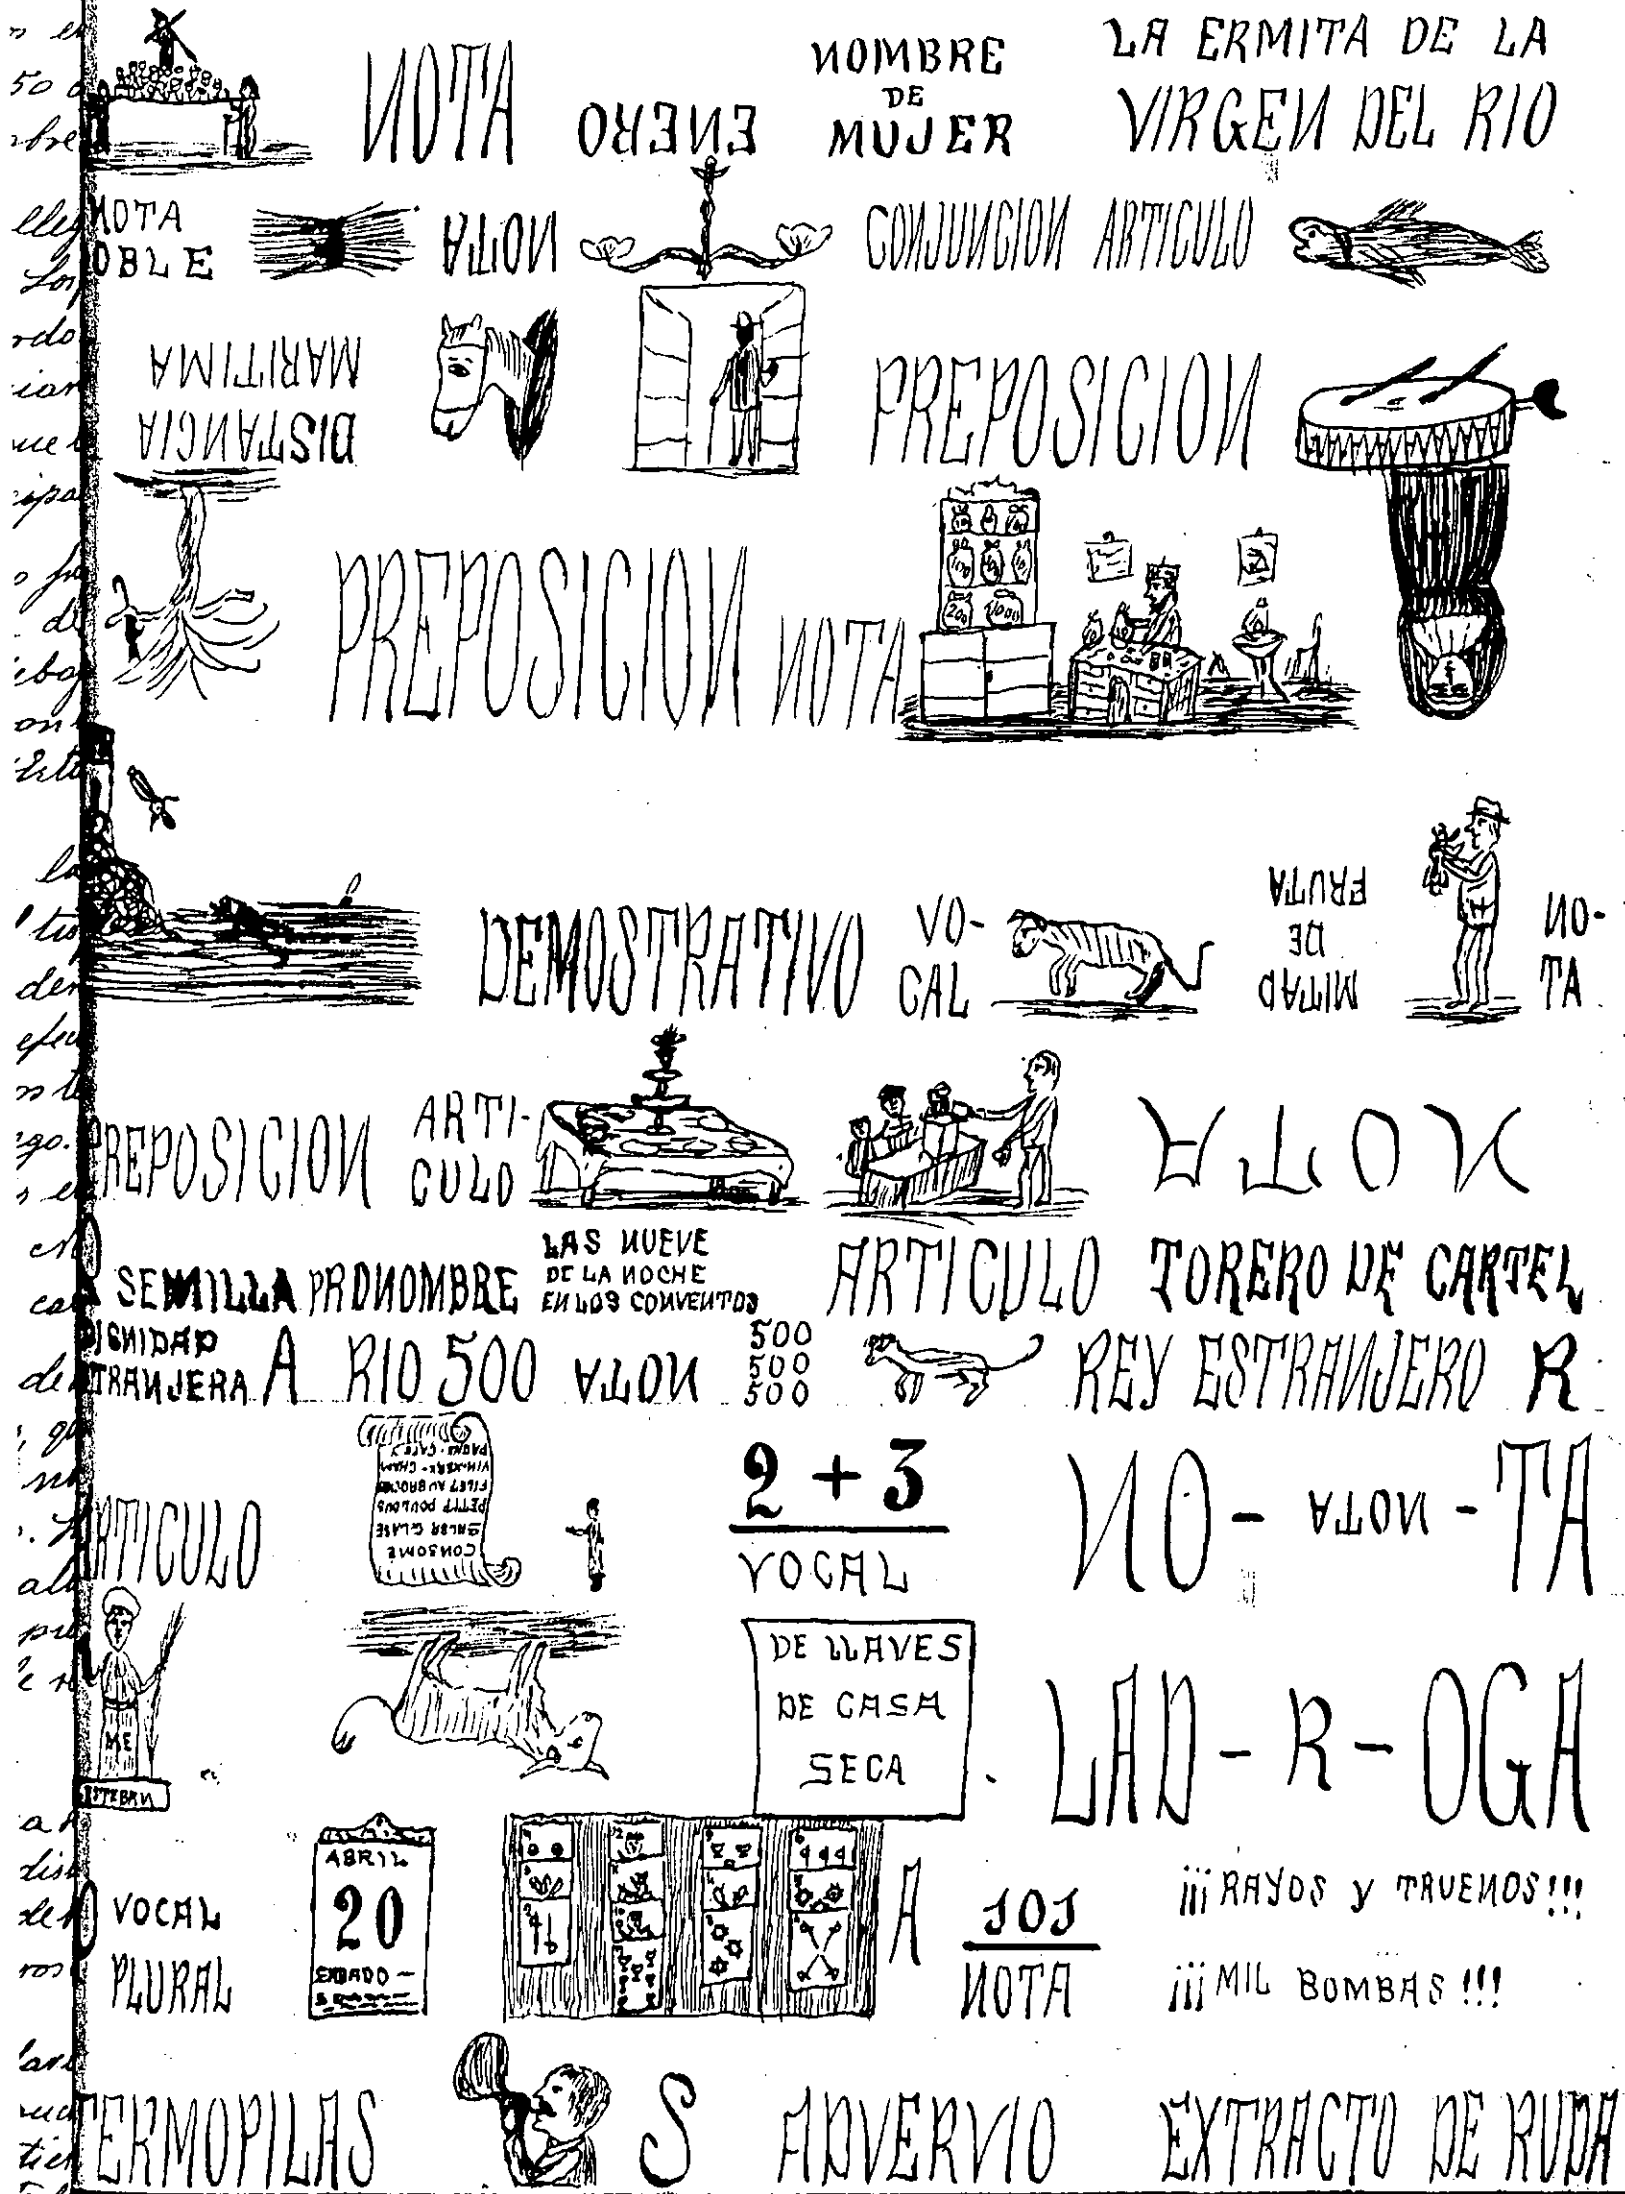 NOTA
ENERO
NOMBRE
DE
MUJER
LA ERMITA DE LA
VIRGEN DEL RIO
NOTA
OBLE
NOTA
CONJUNCION ARTICULO
DISTANCIA
MARITIMA
PREPOSICION
PREPOSICION NOTA
DEMOSTRATIVO
VO-
CAL
MITAD
DE
FRUTA
NO-
TA
PREPOSICION
ARTI-
CULO
NOTA
SEMILLA PRONOMBRE
LAS NUEVE
DE LA NOCHE
EN LOS CONVENTOS
ARTICULO TORERO DE CARTEL
DIGNIDAD
TRANJERA
A RIO 500 NOTA
500
500
500
REY ESTRANJERO R
ARTICULO
CONSOME
SALSA CLASE
PETIT POULOUS
2 + 3
VOCAL
NO- NOTA -TA
ME
STEBAN
DE LLAVES
DE CASA
SECA
LAD-R-OGA
VOCAL
PLURAL
ABRIL
20
A
101
NOTA
¡¡¡RAYOS y TRUENOS!!!
¡¡¡MIL BOMBAS!!!
TERMOPILAS
S ADVERVIO EXTRACTO DE RUDA